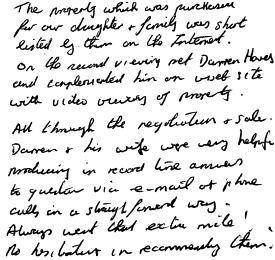 The property which was purchased
for our daughter & family was short
listed by them on the Internet.
On the second viewing met Darren Howes
and complemented him on web site
with video viewing of property.
All through the negotiation & sale
Darren & his wife were very helpful
producing in record time answers
to question via e-mail or phone
calls in a straight forward way.
Always went that extra mile!
No hesitation in recommending them!